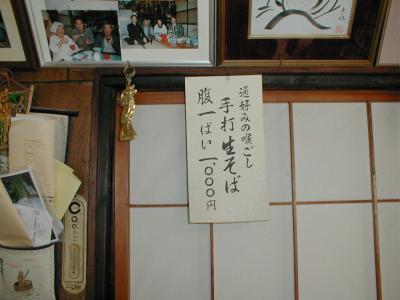 通好みの喉ごし
手打生そば
腹一ぱい一、000円